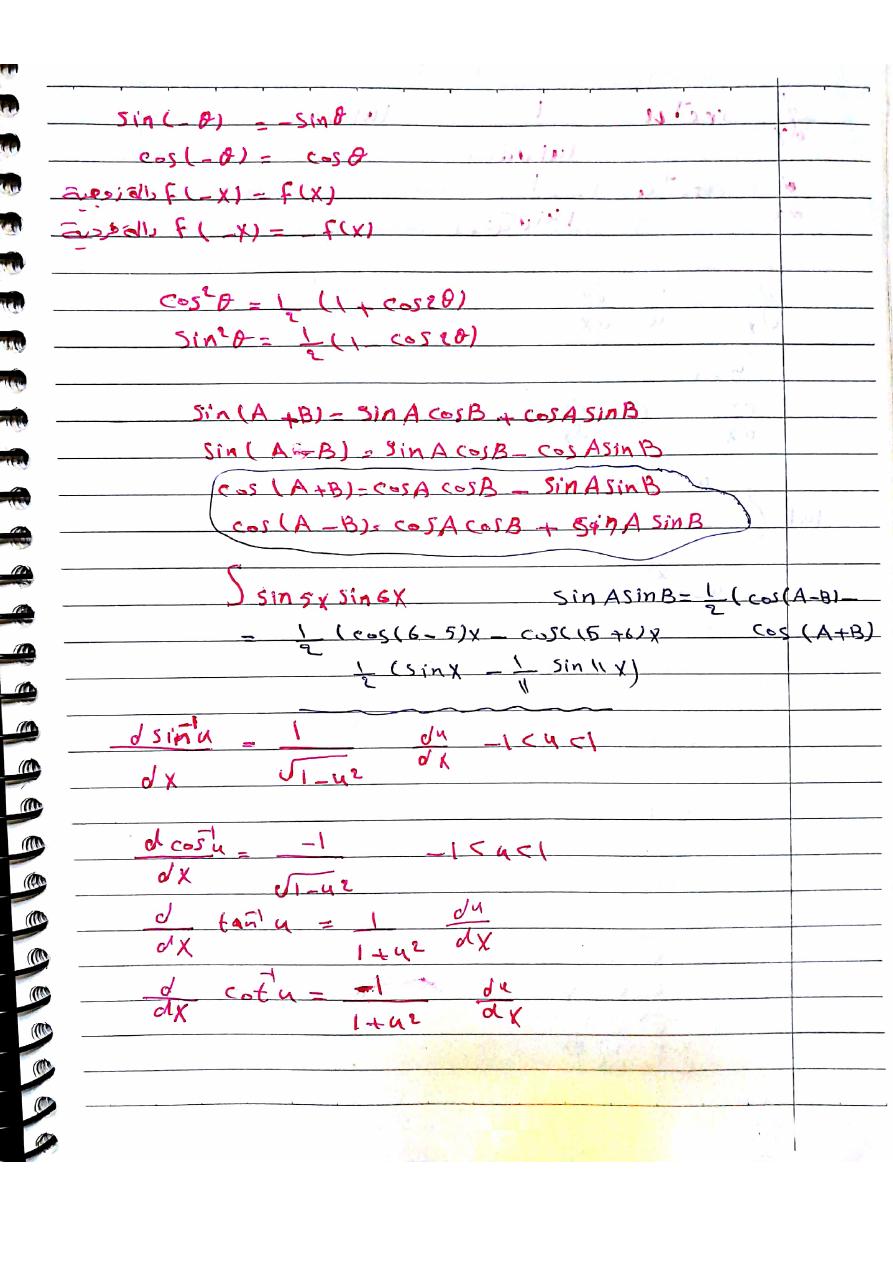 sin(-θ) = -sinθ
cos(-θ) = cosθ
دالة زوجية f(-x) = f(x)
دالة فردية f(-x) = -f(x)
cos²θ = 1/2 (1 + cos2θ)
sin²θ = 1/2 (1 - cos2θ)
sin(A + B) = sinA cosB + cosA sinB
sin(A - B) = sinA cosB - cosA sinB
cos(A+B) = cosA cosB - sinA sinB
cos(A - B) = cosA cosB + sinA sinB
∫ sin5x sin6x sinA sinB = 1/2 (cos(A-B) -
= 1/2 (cos(6-5)x - cos(5+6)x cos(A+B)
1/2 (sinx - 1/11 sin11x)
d sin⁻¹u/dx = 1/√(1-u²) du/dx -1<u<1
d cos⁻¹u/dx = -1/√(1-u²) -1<u<1
d/dx tan⁻¹u = 1/(1+u²) du/dx
d/dx cot⁻¹u = -1/(1+u²) du/dx